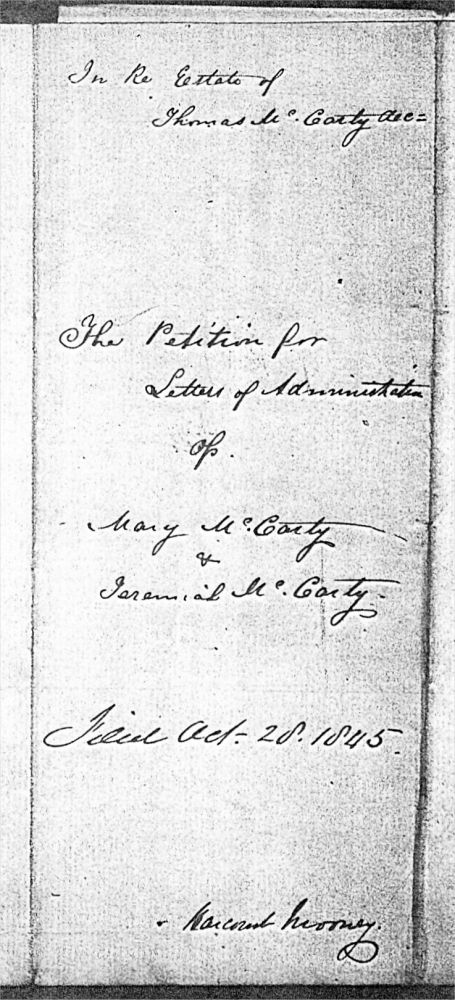 In Re Estate of
Thomas Mc. Carty dec=
The Petition for
Letters of Administration
of.
Mary Mc. Carty
&
Jeremiah Mc. Carty.
Filed Oct= 28. 1845.
Mooney.